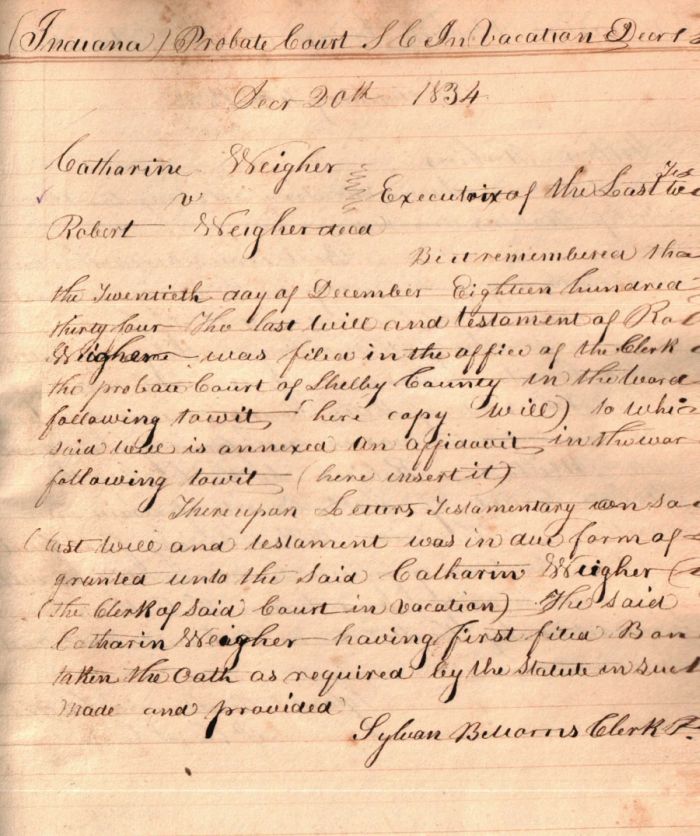 (Indiana) Probate Court S C In Vacation Decr
Decr 20th 1834
Catharine Weigher
v Executrix of the Last
Robert Weigher decd
Be it remembered tha
the Twentieth day of December Eighteen hundred
thirty four The last will and testament of Ro
Weigher was filed in the office of the Clerk
the probate Court of Shelby County in the word
following towit (here copy Will) to whic
said will is annexed an affidavit in the wor
following towit (here insert it)
Thereupon Letters Testamentary on sa
last will and testament was in due form of
granted unto the said Catharin Weigher (
(the Clerk of said Court in vacation) The said
Catharin Weigher having first filed Bon
taken the Oath as required by the statute in suc
made and provided
Sylvan Clerk P.